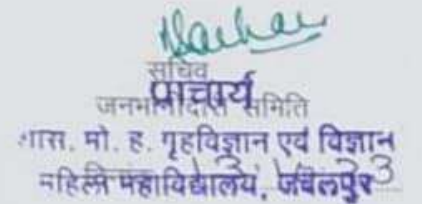 सचिव
प्राचार्य
जनभागीदारी समिति
शास. मो. ह. गृहविज्ञान एवं विज्ञान
महिला महाविद्यालय, जबलपुर